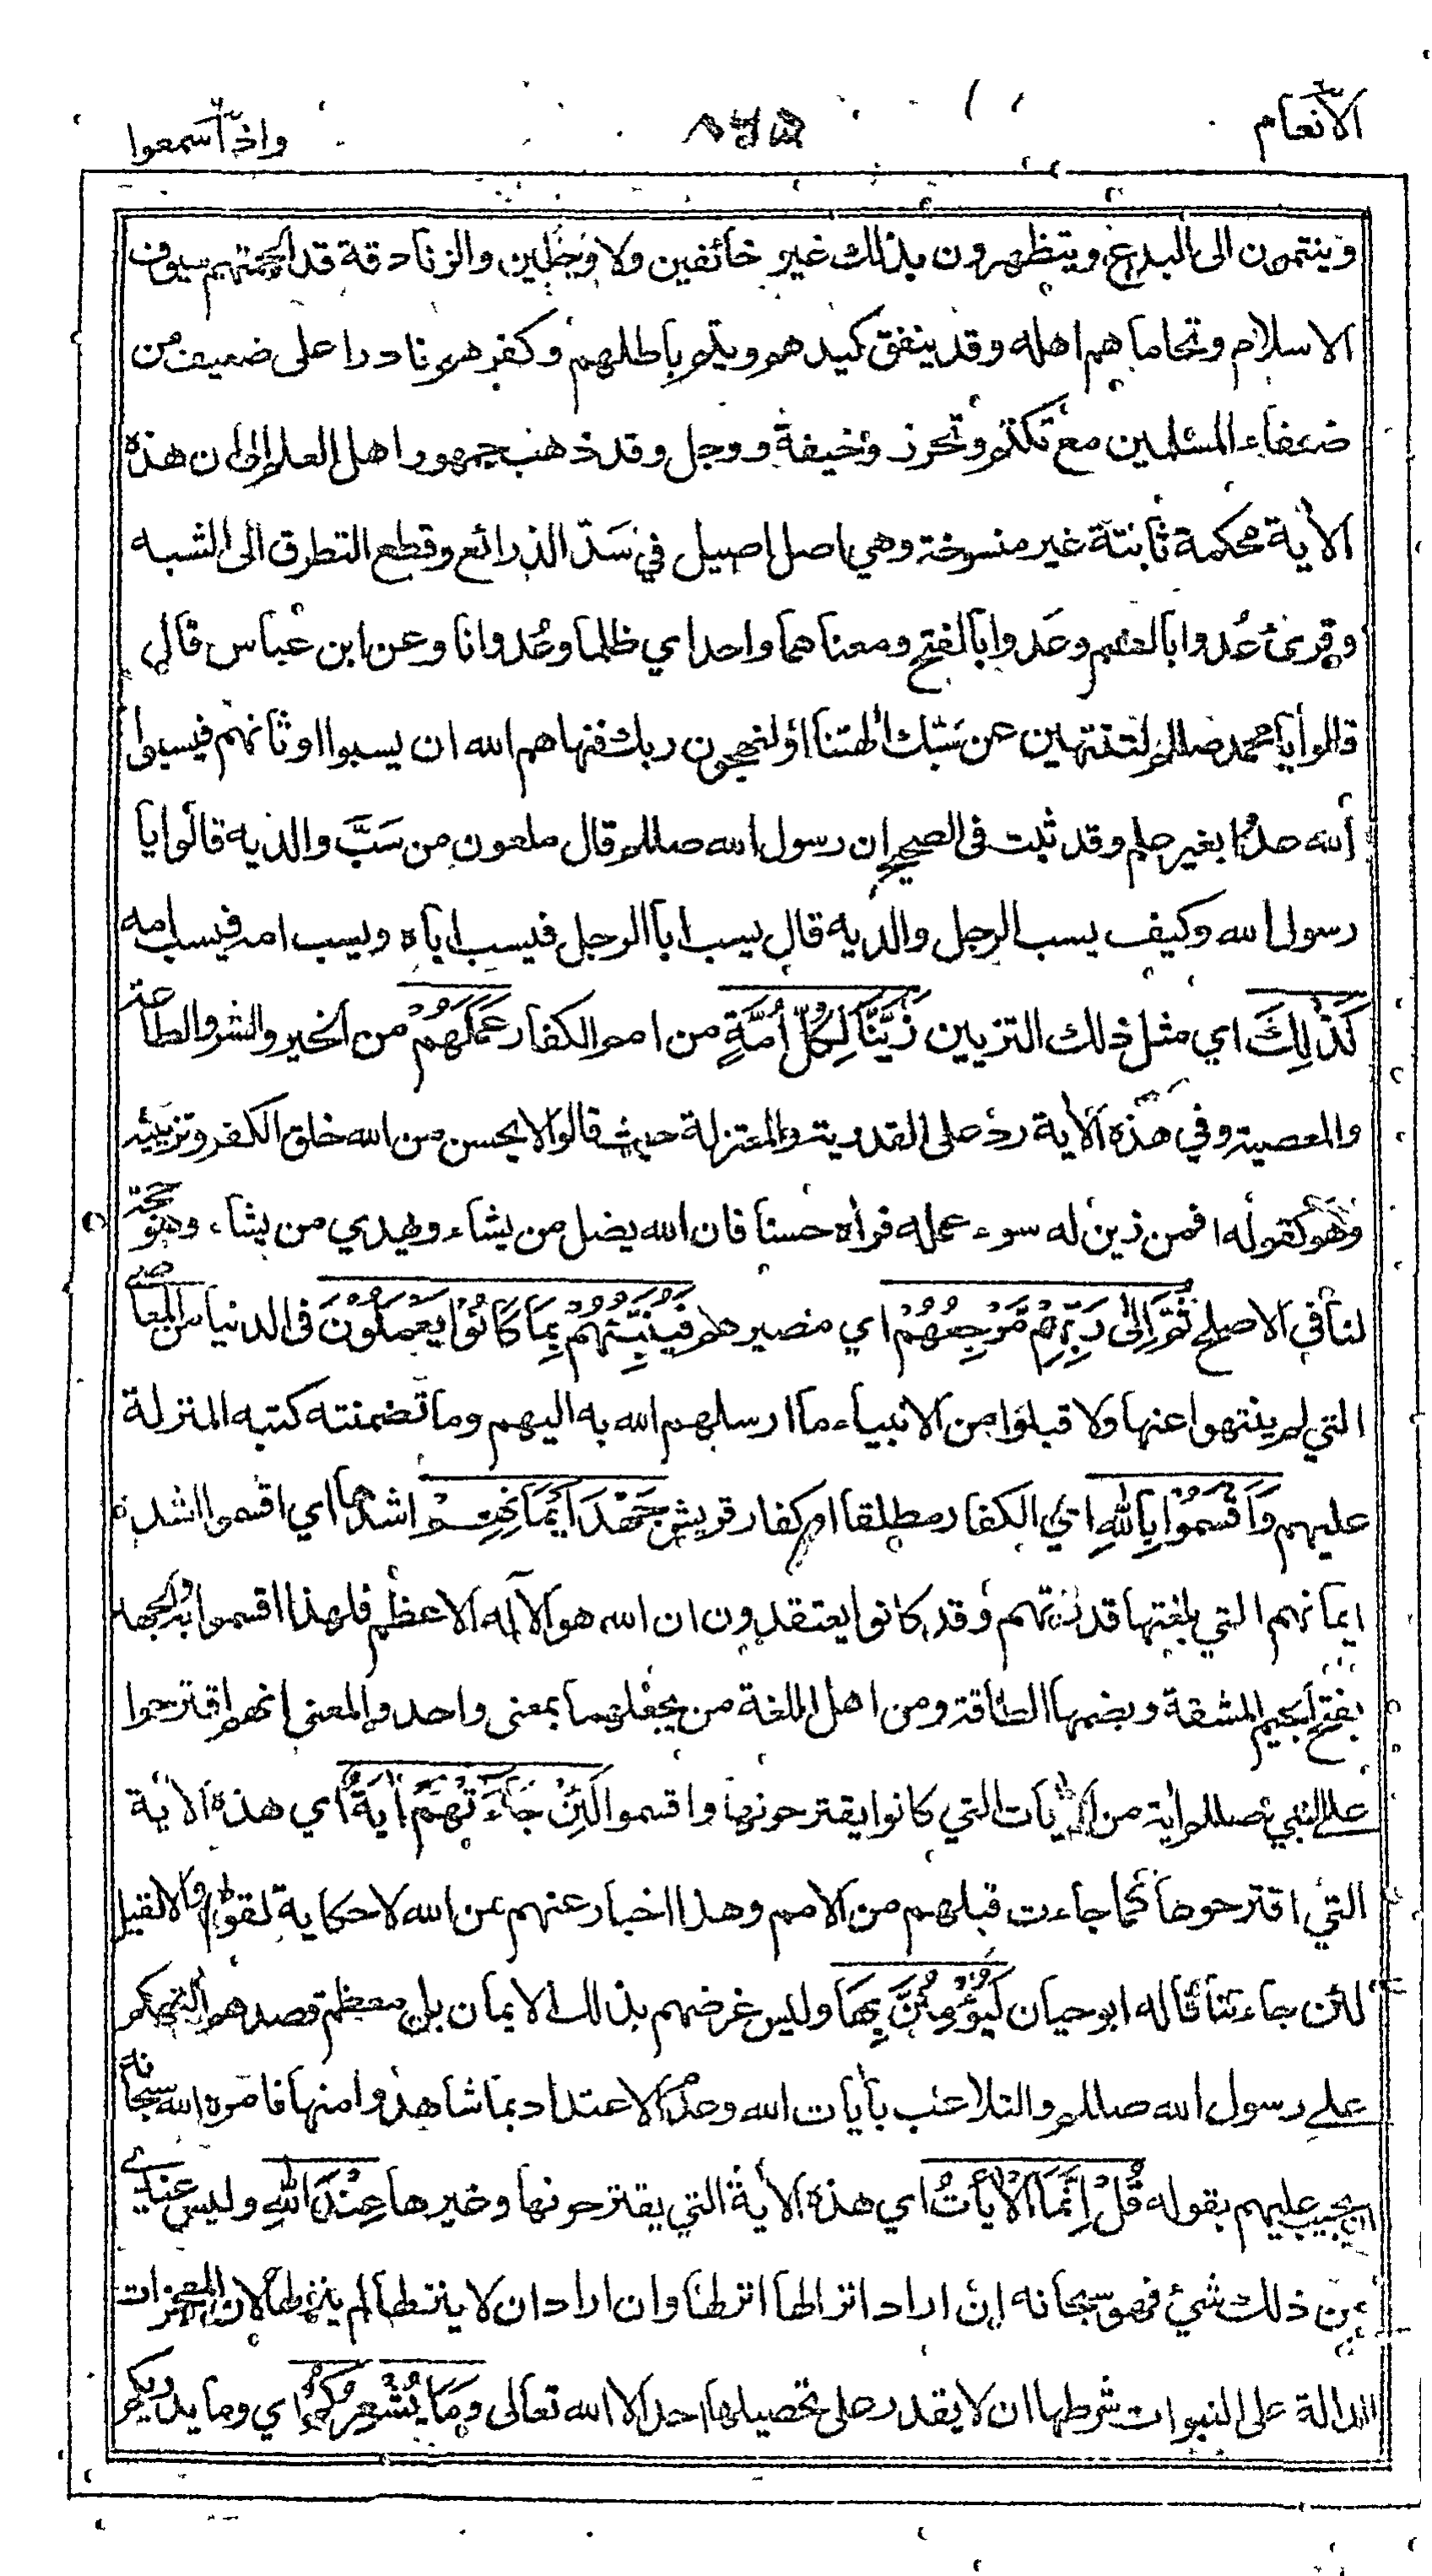 الأنعام ٨٧٥ واذا سمعوا
وينتمون الى البدع ويتظهرون بذلك غير خائفين ولا وجلين والزنادقة قد الجمتهم سيوف
الاسلام وتحاماهم اهله وقد ينفق كيدهم ويتم باطلهم وكفرهم نادرا على ضعيف من
ضعفاء المسلمين مع تكتم وتحرز وخيفة ووجل وقد ذهب جمهور اهل العلم الى ان هذه
الأية محكمة ثابتة غير منسوخة وهي اصل اصيل في سَدّ الذرائع وقطع التطرق الى الشبه
وقرئ عُدوا بالضم وعَدوا بالفتح ومعناهما واحد اي ظلما وعُدوانا وعن ابن عباس قال
قالوا يا محمد صللم لتنتهين عن سَبّك ألهتنا اولنهجون ربك فنهاهم الله ان يسبوا اوثانهم فيسبوا
الله عدوا بغير علم وقد ثبت فى الصحيح ان رسول الله صللم قال ملعون من سَبَّ والديه قالوا يا
رسول الله وكيف يسب الرجل والديه قال يسب ابا الرجل فيسب اباه ويسب امه فيسب امه
كَذٰلِكَ اي مثل ذلك التزيين زَيَّنَّا لِكُلِّ أُمَّةٍ من امم الكفار عَمَلَهُمْ من الخير والشر والطاعة
والمعصية وفي هذه الأية رد على القدرية والمعتزلة حيث قالوا لا يحسن من الله خلق الكفر وتزيينه
وهو كقوله افمن زين له سوء عمله فرأه حسنا فان الله يضل من يشاء ويهدي من يشاء وهو حجة
لنا فى الاصلح ثُمَّ اِلٰى رَبِّهِمْ مَّرْجِعُهُمْ اي مصيرهم فَيُنَبِّئُهُمْ بِمَا كَانُوْا يَعْمَلُوْنَ فى الدنيا من المعاصي
التي لم ينتهوا عنها ولا قبلوا من الانبياء ما ارسلهم الله به اليهم وما تضمنته كتبه المنزلة
عليهم وَاَقْسَمُوْا بِاللّٰهِ اي الكفار مطلقا او كفار قريش جَهْدَ اَيْمَانِهِمْ اشدها اي اقسموا اشد
ايمانهم التي بلغتها قدرتهم وقد كانوا يعتقدون ان الله هو الأله الاعظم فلهذا اقسموا به والجهد
بفتح الجيم المشقة وبضمها الطاقة ومن اهل اللغة من يجعلهما بمعنى واحد والمعنى انهم اقترحوا
على النبي صللم أية من الأيات التي كانوا يقترحونها واقسموا لَئِنْ جَاءَتْهُمْ اٰيَةٌ اي هذه الأية
التي اقترحوها كما جاءت قبلهم من الامم وهذا اخبار عنهم من الله لا حكاية لقولهم والا لقيل
لئن جاءتنا قاله ابو حيان لَيُؤْمِنُنَّ بِهَا وليس غرضهم بذلك الايمان بل معظم قصدهم التهكم
على رسول الله صللم والتلاعب بأيات الله وعدم الاعتداد بما شاهدوا منها فامره الله سبحانه
ان يجيب عليهم بقوله قُلْ اِنَّمَا الْاٰيَاتُ اي هذه الأية التي يقترحونها وغيرها عِنْدَ اللّٰهِ وليس عندي
من ذلك شئ فهو سبحانه إن اراد انزالها انزلها وان اراد ان لا ينزلها لم ينزلها لان المعجزات
الدالة على النبوات شرطها ان لا يقدر على تحصيلها احد الا الله تعالى وَمَا يُشْعِرُكُمْ اي وما يدريكم